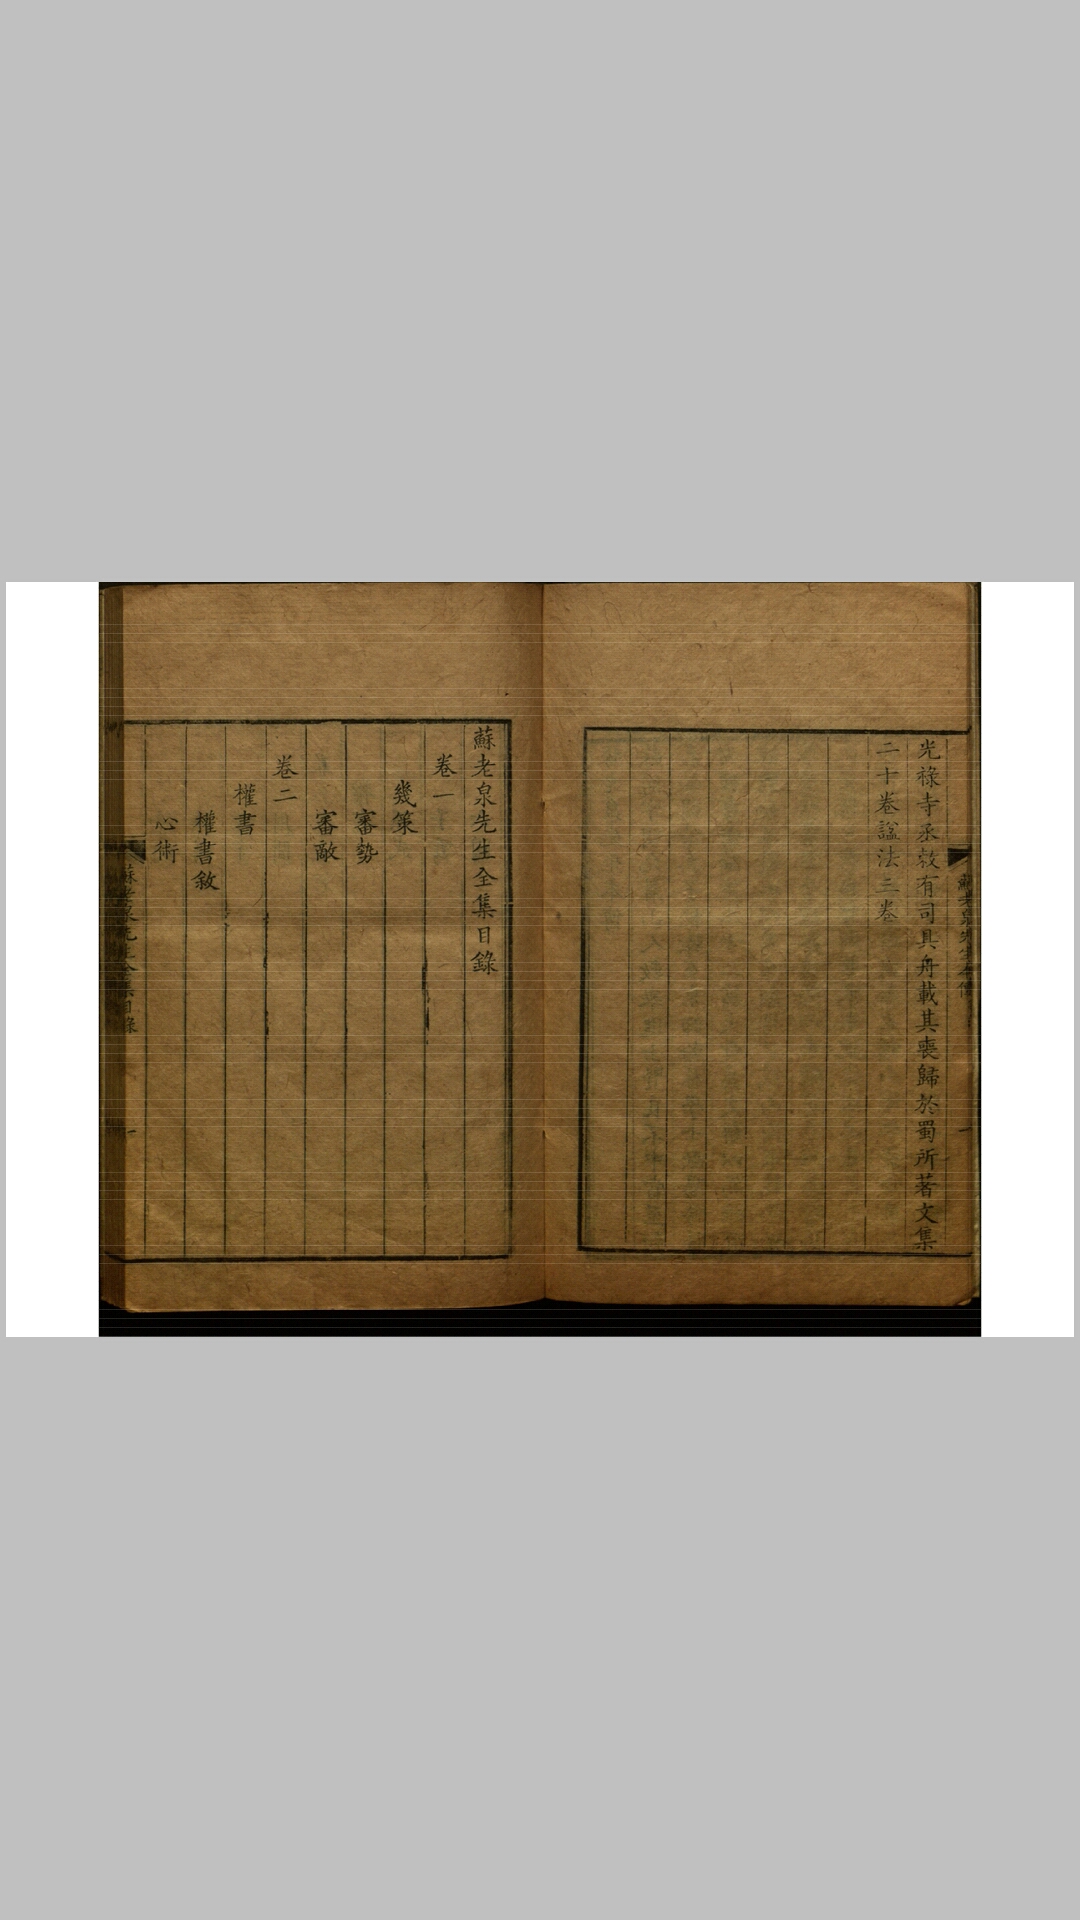 光祿寺丞敕有司具舟載其喪歸於蜀所著文集
二十卷諡法三卷
蘇老泉先生全集目錄
卷一
幾策
審勢
審敵
卷二
權書
權書敘
心術
蘇老泉先生全集目錄